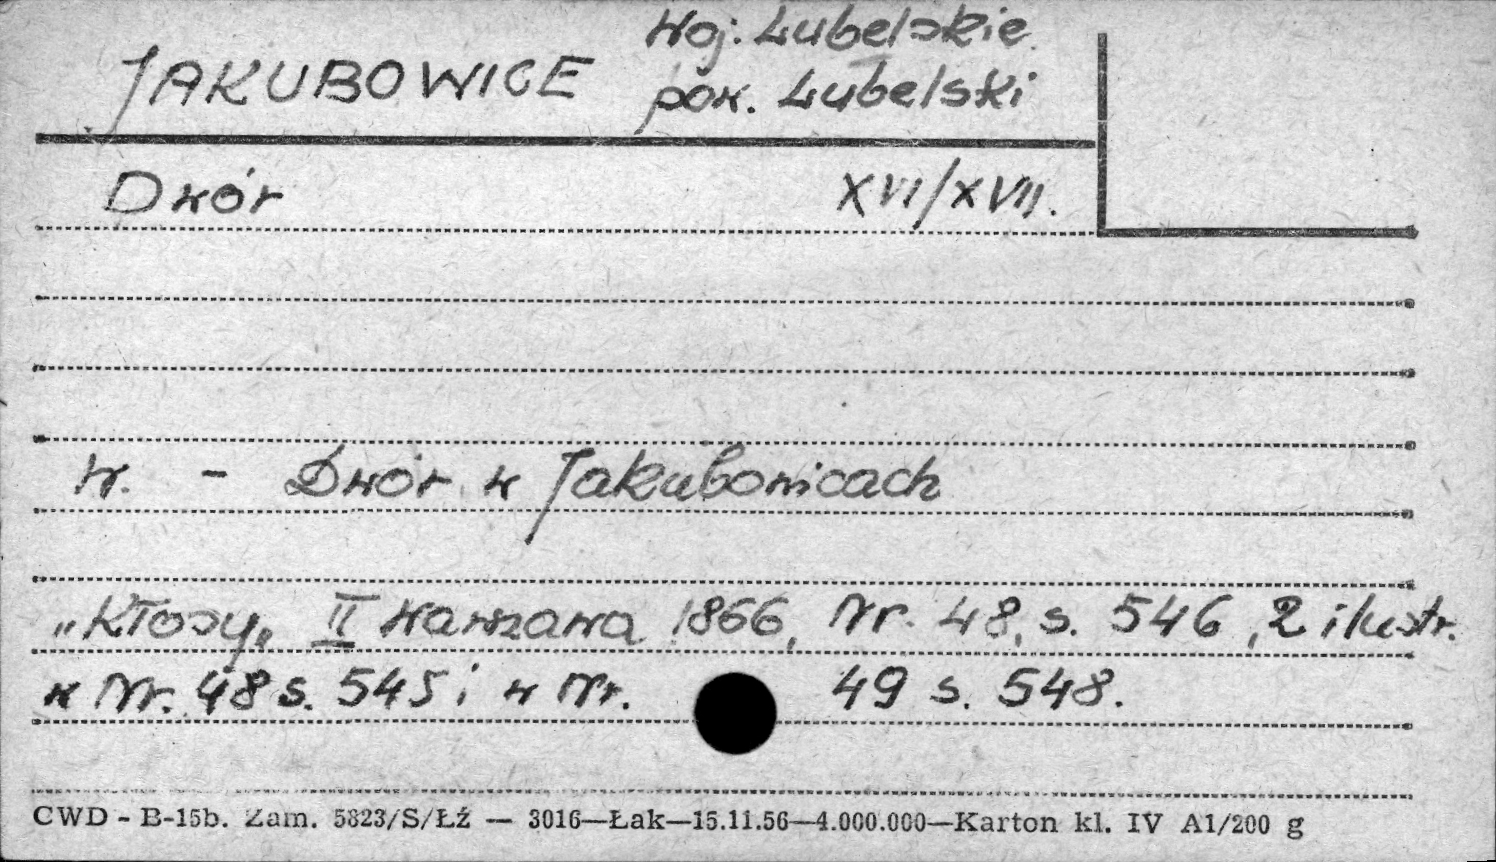 JAKUBOWICE
Woj. Lubelskie
pow. Lubelski
Dwór XVI/XVII.
W. - Dwór w Jakubowicach
„Kłosy„ II Warszawa 1866, Nr. 48, s. 546, 2 ilustr.
w Nr. 48 s. 545 i w Nr. 49 s. 548.
CWD - B-15b. Zam. 5823/S/Łź — 3016—Łak—15.11.56—4.000.000—Karton kl. IV A1/200 g